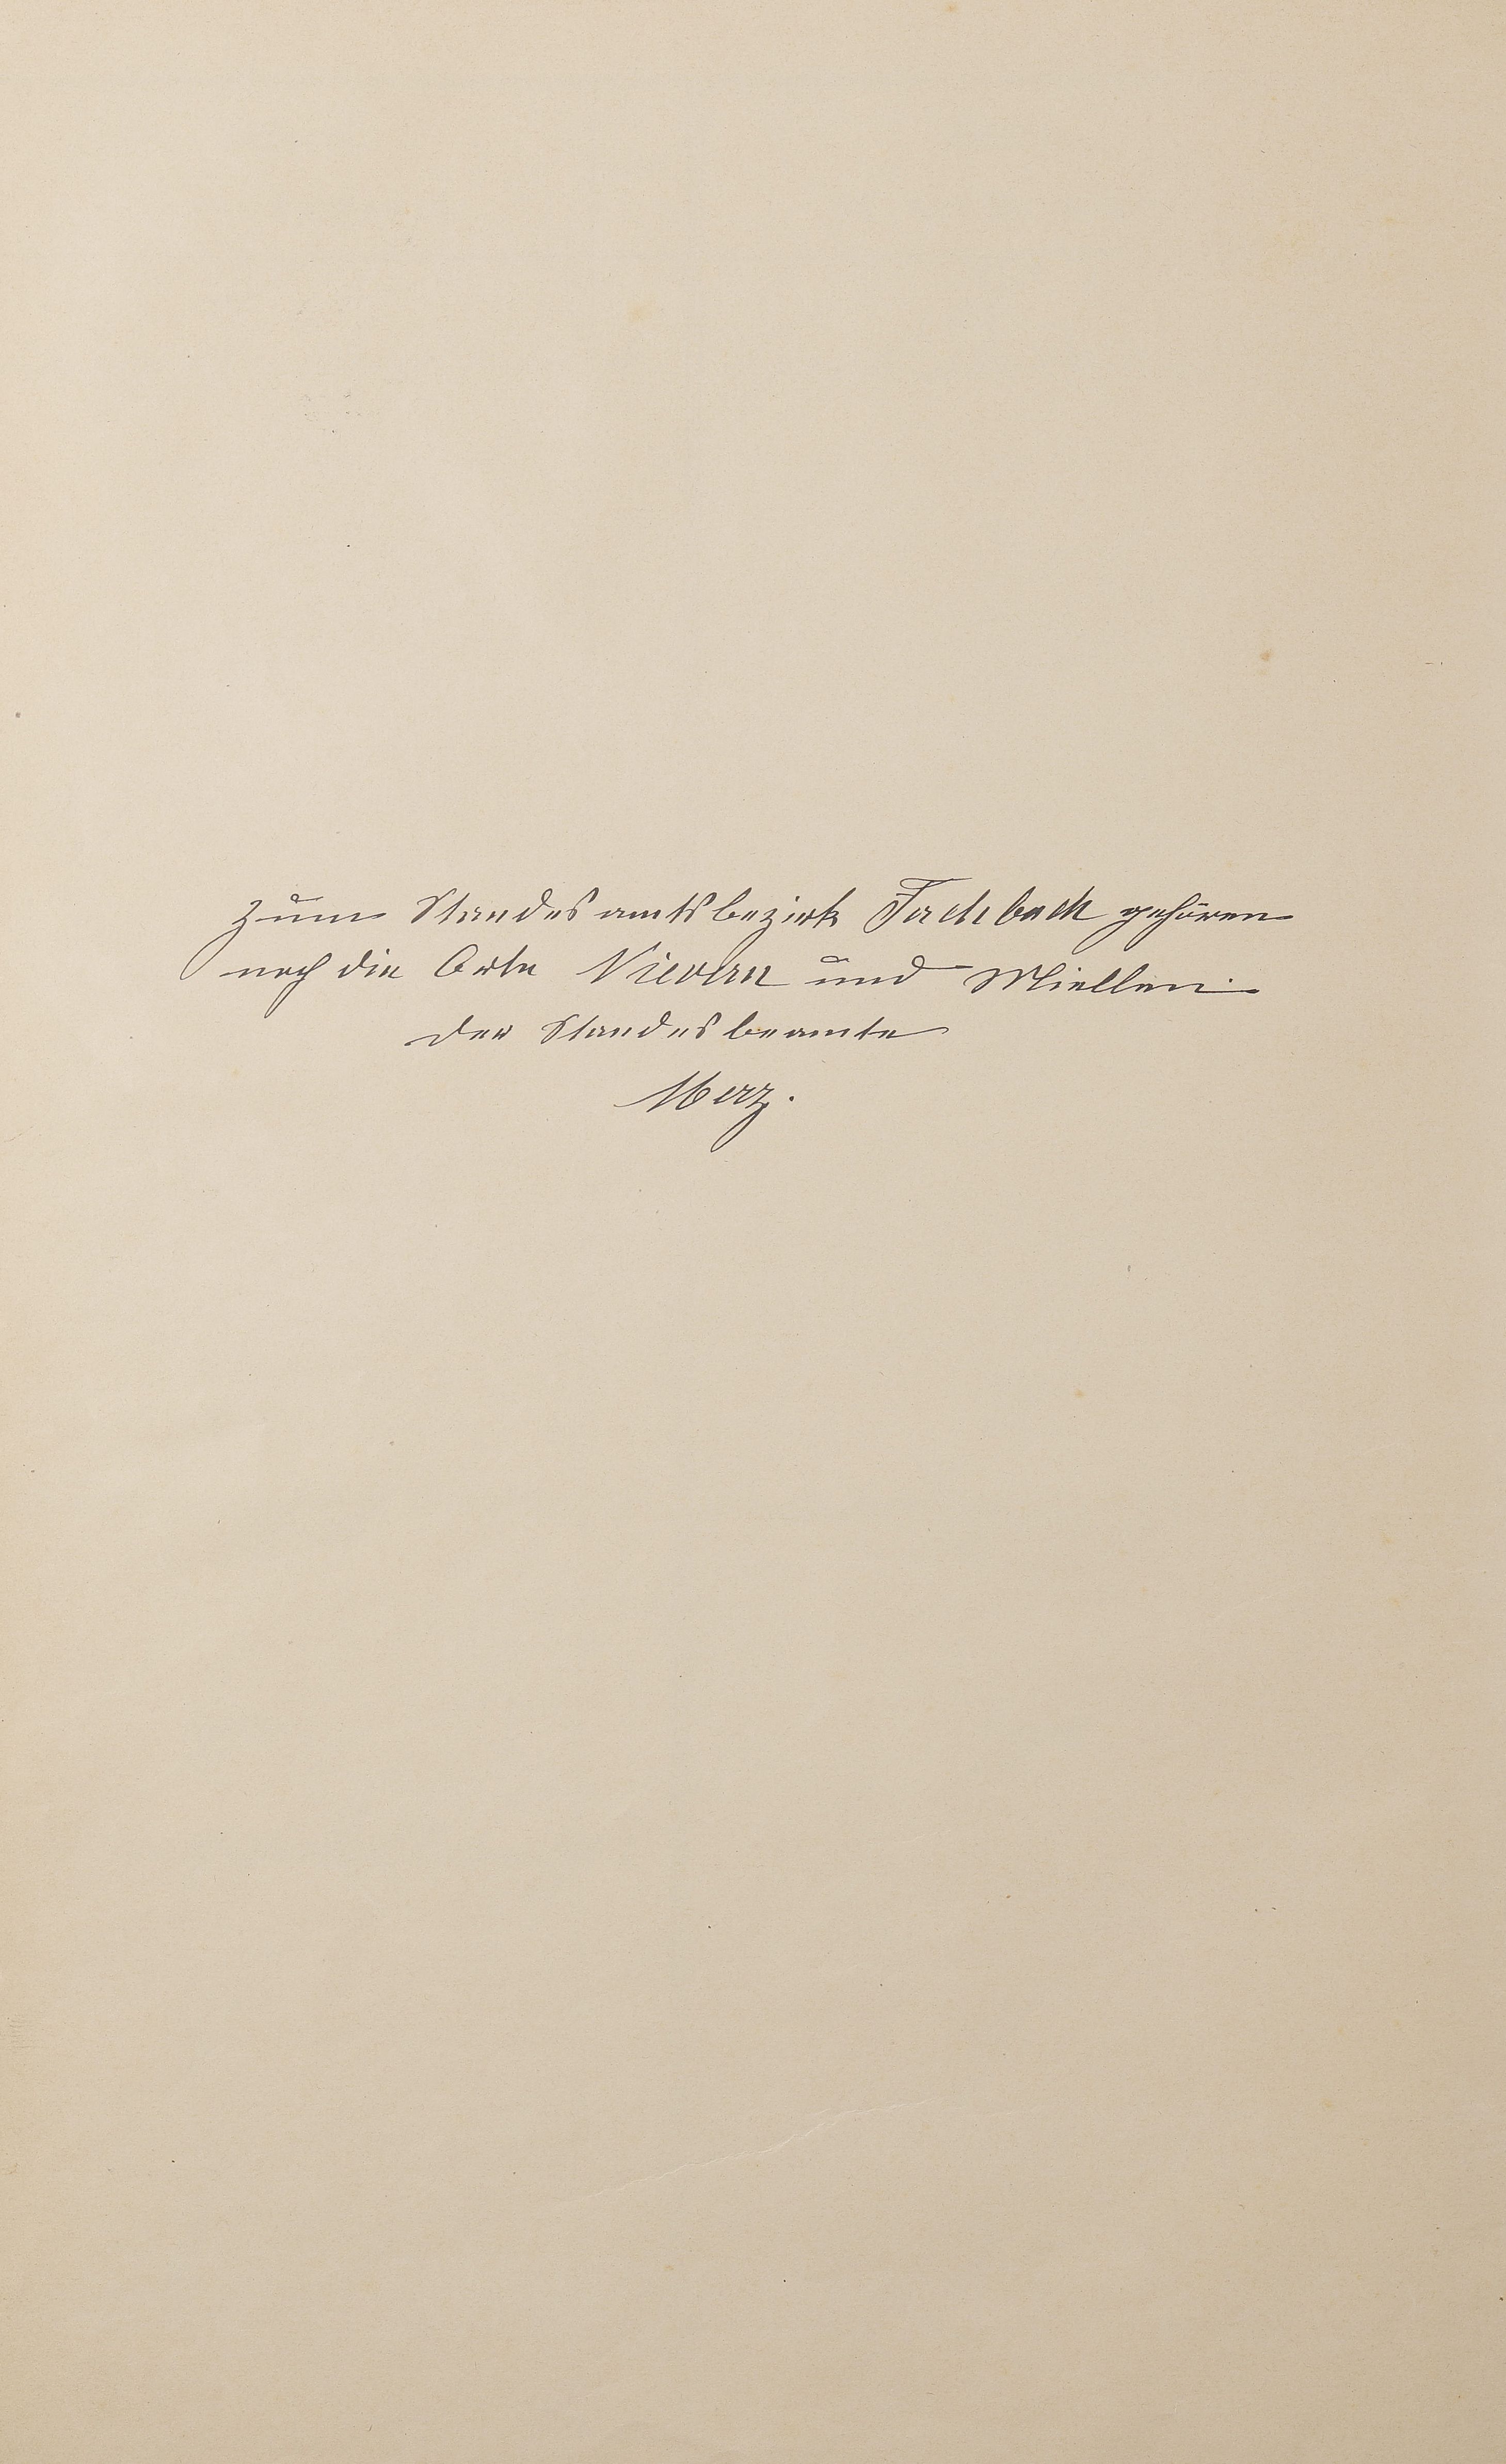 Zum Standesamtsbezirk Fachbach gehören
noch die Orte Nievern und Miellen.
Der Standesbeamte
Merz.